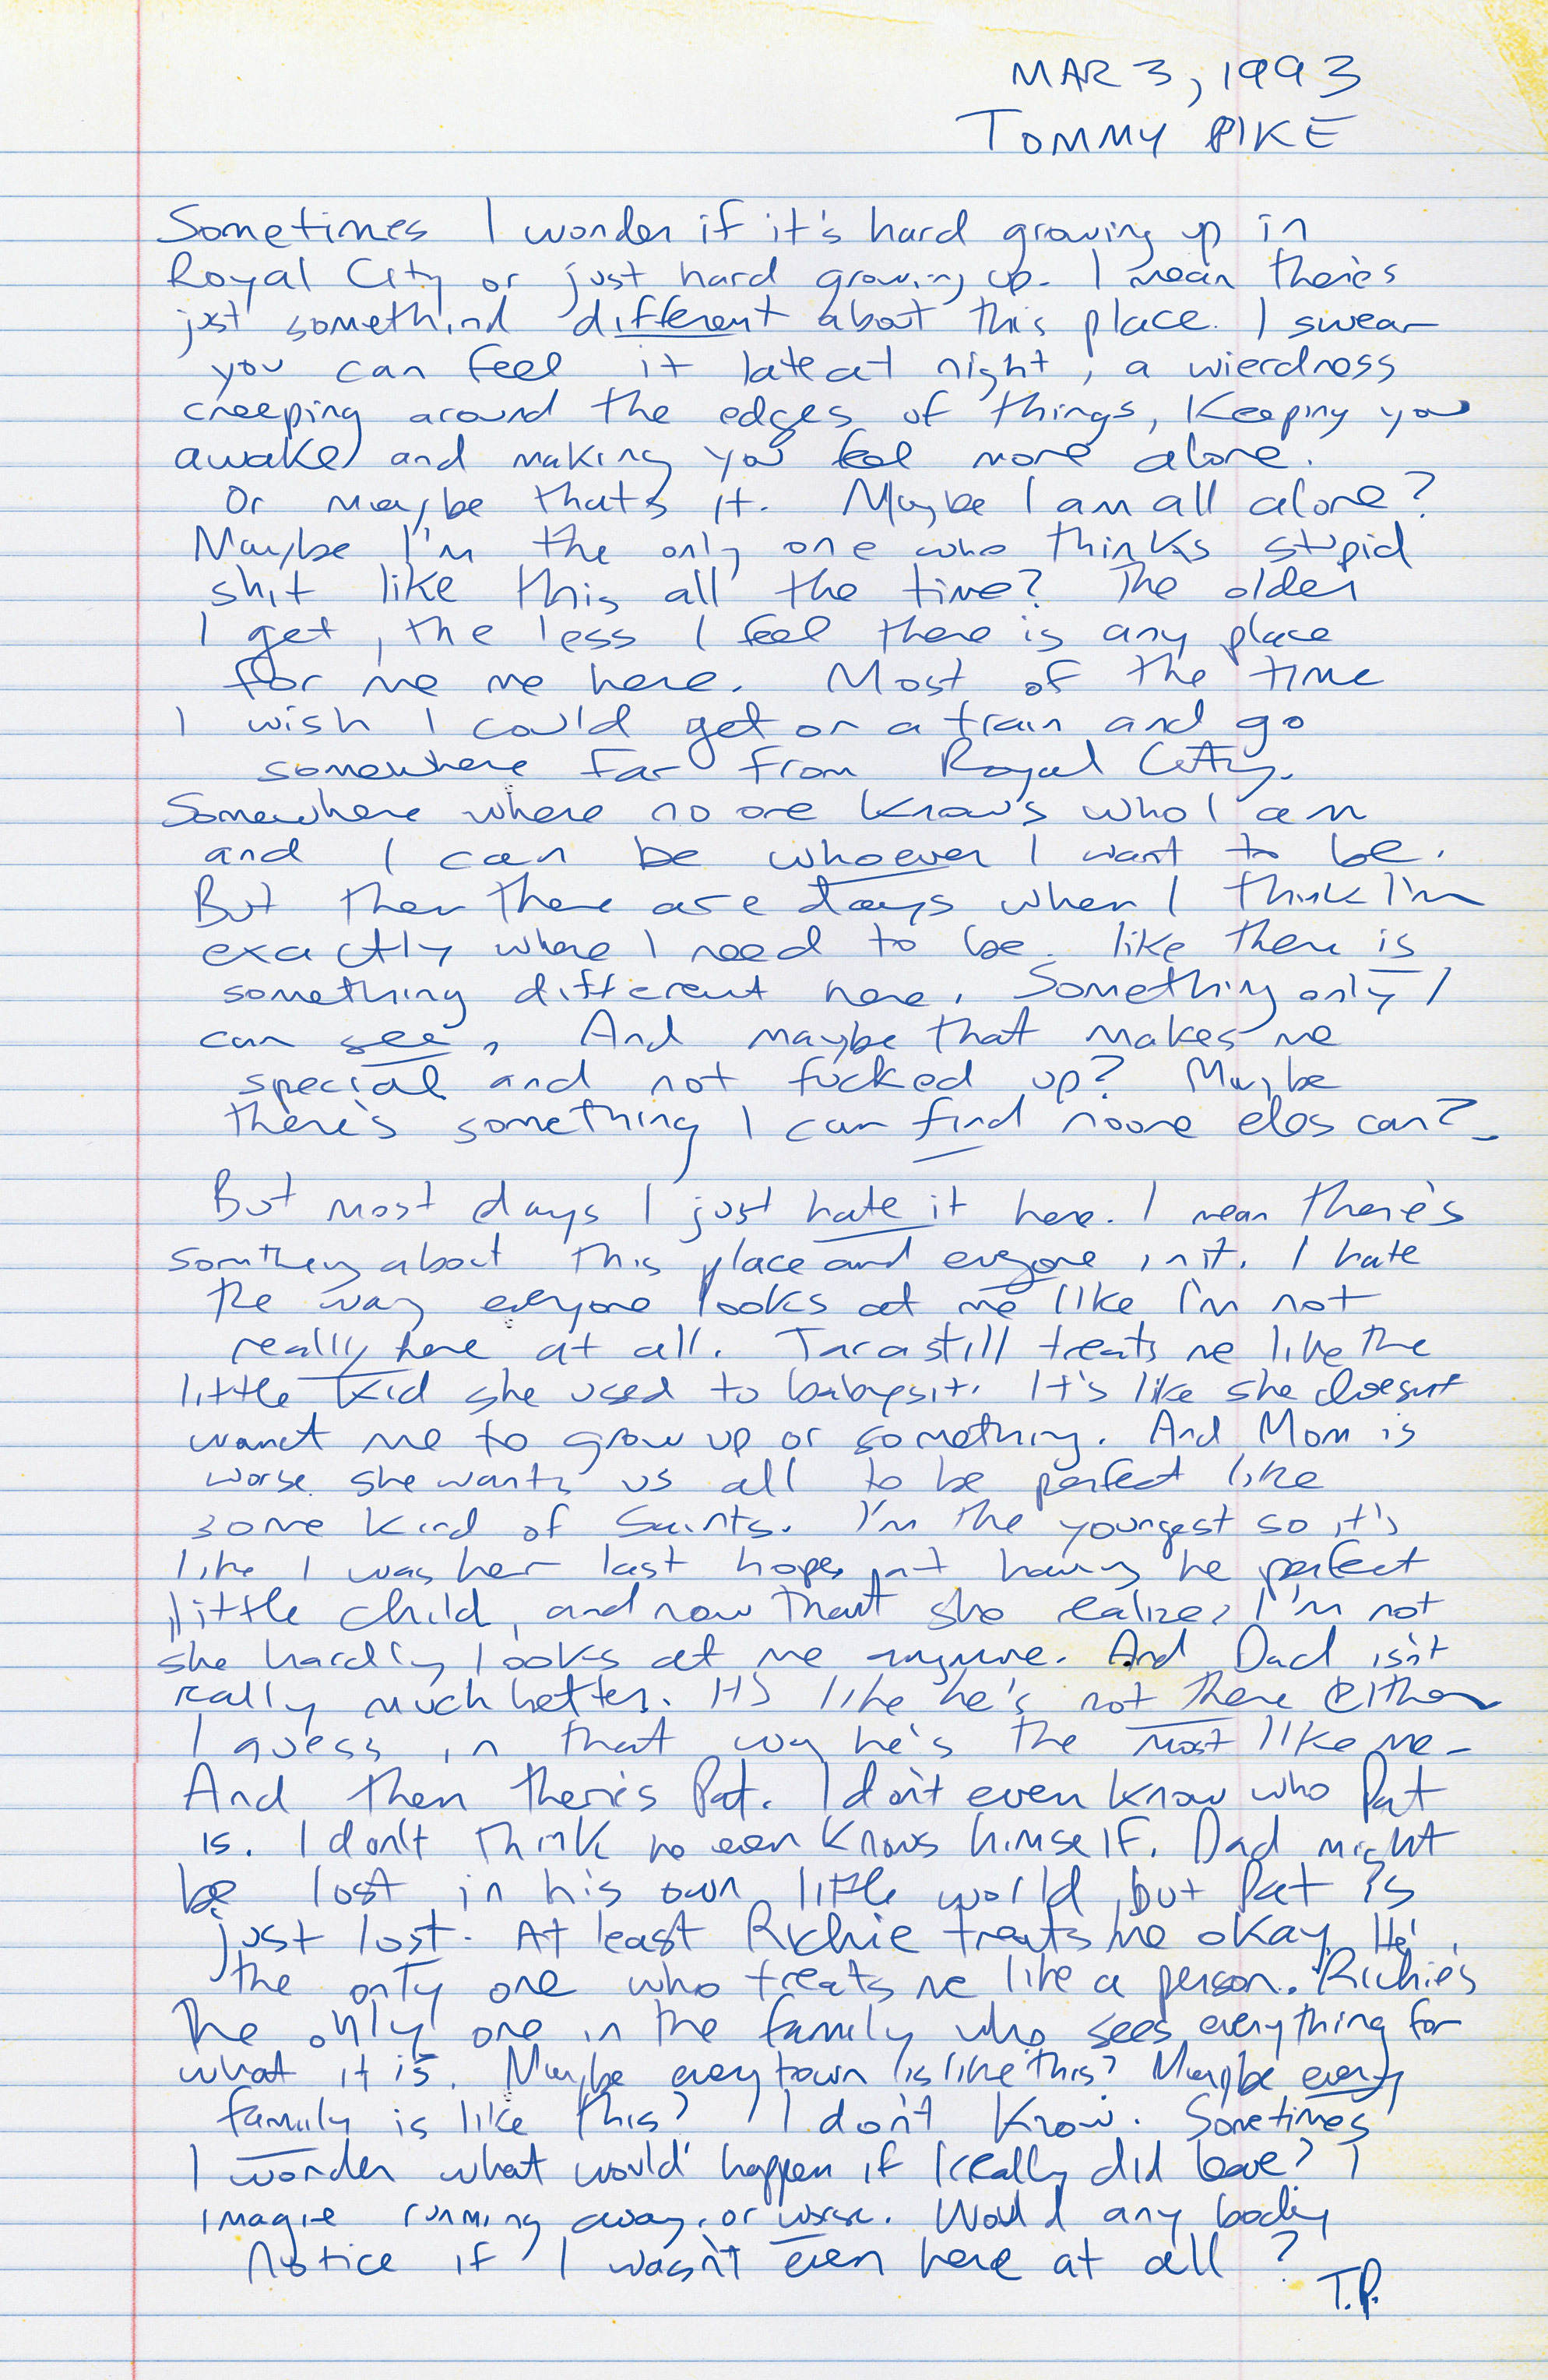 MAR 3, 1993
TOMMY PIKE
Sometimes I wonder if it's hard growing up in
Royal City or just hard growing up. I mean there's
just somethind different about this place. I swear
you can feel it late at night, a wierdness
creeping around the edges of things, keeping you
awake and making you feel more alone.
Or maybe that's it. Maybe I am all alone?
Maybe I'm the only one who thinks stupid
shit like this all the time? The older
I get, the less I feel there is any place
for me me here. Most of the time
I wish I could get on a train and go
somewhere far from Royal City.
Somewhere where no one knows who I am
and I can be whoever I want to be.
But then there are days when I think I'm
exactly where I need to be. like there is
something different here. Something only I
can see. And maybe that makes me
special and not fucked up? Maybe
there's something I can find noone eles can?
But most days I just hate it here. I mean there's
somthing about this place and evryone in it. I hate
the way everyone looks at me like I'm not
really here at all. Tara still treats me like the
little kid she used to babysit. It's like she doesnt
want me to grow up or something. And Mom is
worse she wants us all to be perfect like
some kind of Saints. I'm the youngest so it's
like I was her last hope at having he perfect
little child, and now that she realizes I'm not
she hardly looks at me anymore. And Dad isn't
really much better. It's like he's not there either
I guess in that way he's the most like me.
And then there's Pat. I don't even know who Pat
is. I don't think he even knows himself. Dad might
be lost in his own little world but Pat is
just lost. At least Richie treats me okay. He'
the only one who treats me like a person. Richie's
The only one in the family who sees everything for
what it is. Maybe every town is like this? Maybe every
family is like this? I don't know. Sometimes
I wonder what would happen if I really did leave? I
imagie running away. or worse. Would any body
Notice if I wasn't even here at all?
T.P.